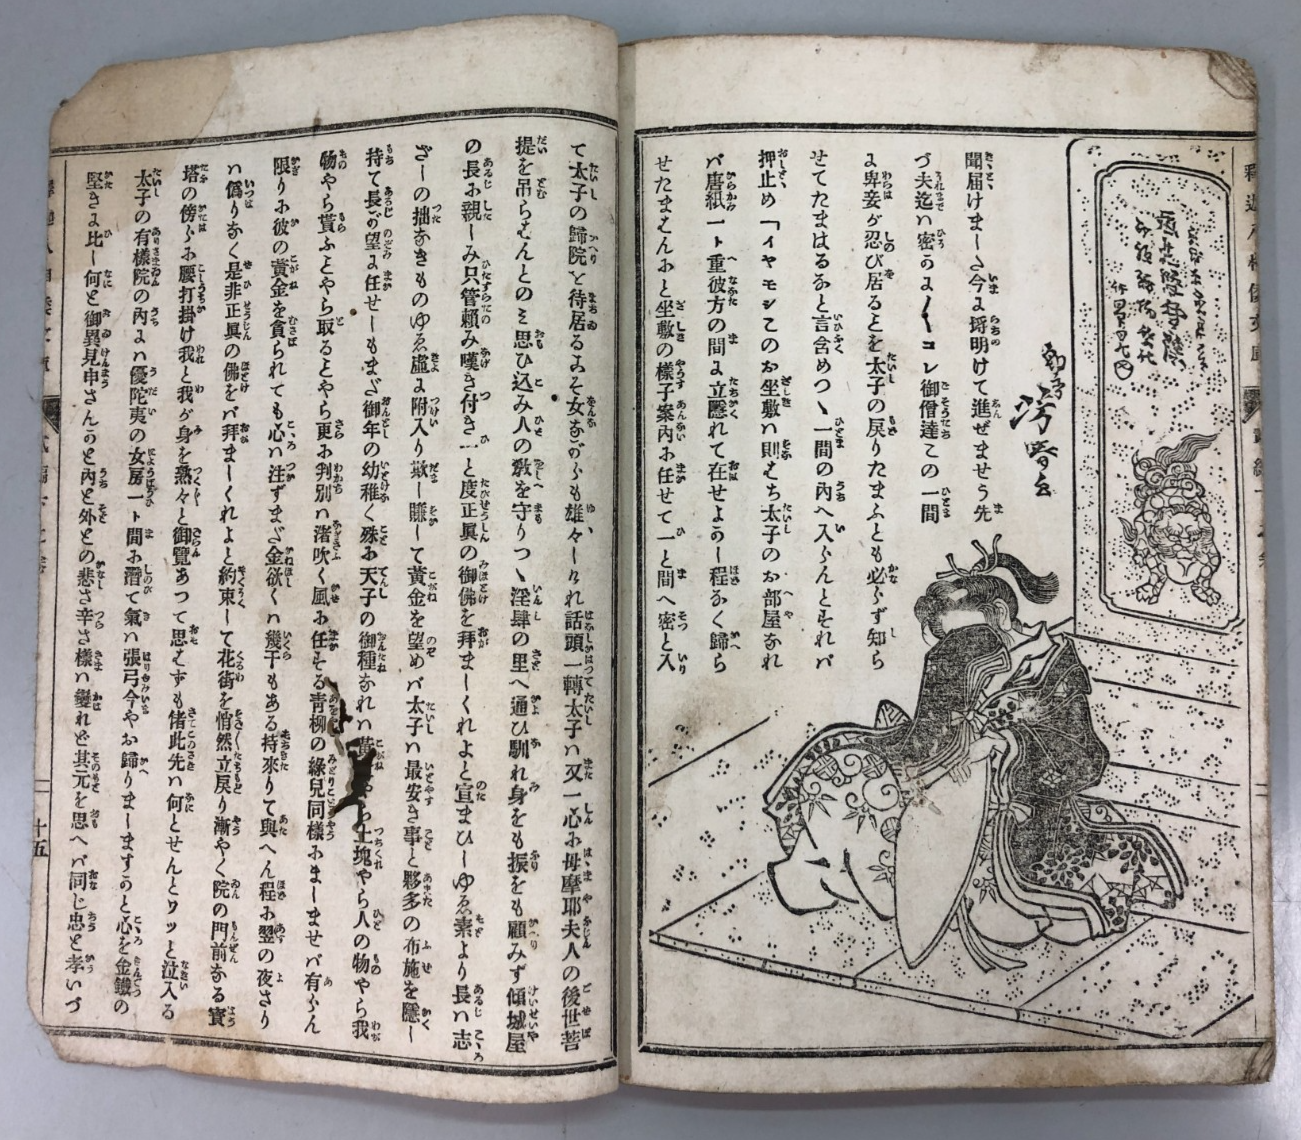 聞届けましたヽ今よ埒明けて進ぜませう先
づ夫迄ハ密うよ〳〵コレ御僧達この一間
よ卑妾が忍び居るとを太子の戻りたまふとも必らず知ら
せてたまはるなと言含めつヽ一間の內へ入らんとすれバ
押止め「イヤモシこのお坐敷ハ則はち太子のお部屋なれ
バ唐紙一ト重彼方の間よ立隱れて在せよかし程なく歸ら
せたまはんにと坐敷の樣子案內に任せて一と間へ密と入
て太子の歸院を待居るこそ女ながらも雄々しけれ話頭一轉太子ハ又一心に母摩耶夫人の後世菩
提を吊らはんとのミ思ひ込み人の敎を守りつヽ淫肆の里へ通ひ馴れ身をも振をも顧みず傾城屋
の長に親しみ只管賴み嘆き付き一と度正眞の御佛を拜ましくれよと宣まひしゆゑ素より長ハ志
ざしの拙なきものゆゑ虛よ附入り欺し賺して黃金を望めバ太子ハ最安き事と夥多の布施を隱し
持て長が望よ任せしもまだ御年の幼稚く殊に天子の御種なれハ黃やら土塊やら人の物やら我
物やら貰ふとやら取るとやら更に判別ハ渚吹く風に任する靑柳の綠兒同樣にましませバ有らん
限りに彼の黃金を貪られても心ハ注ずまだ金欲くハ幾干もある持來りて與へん程に翌の夜さり
ハ僞りなく是非正眞の佛をバ拜ましくれよと約束して花街を悄然立戾り漸やく院の門前なる寳
塔の傍らに腰打掛け我と我が身を熟々と御覽あつて思はずも偖此先ハ何とせんとワッと泣入る
太子の有樣院の內よハ優陀夷の女房一ト間に潛て氣ハ張弓今やお歸りましますかと心を金鐵の
堅きよ比し何と御異見申さんかと內と外との悲さ辛さ樣ハ變れど其元を思へバ同じ忠と孝いづ
十五